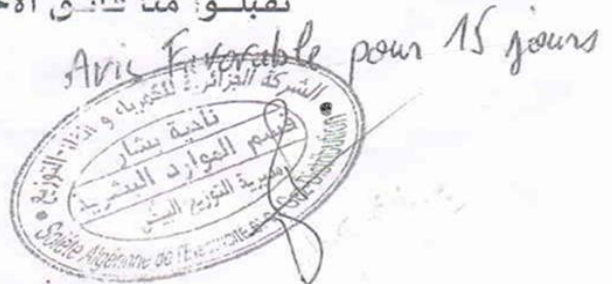 Avis Favorable pour 15 jours
الشركة الجزائرية للكهرباء و الغاز التوزيع
ناحية بشار
قسم الموارد البشرية
مديرية التوزيع البيض
Société Algérienne de l'Electricité